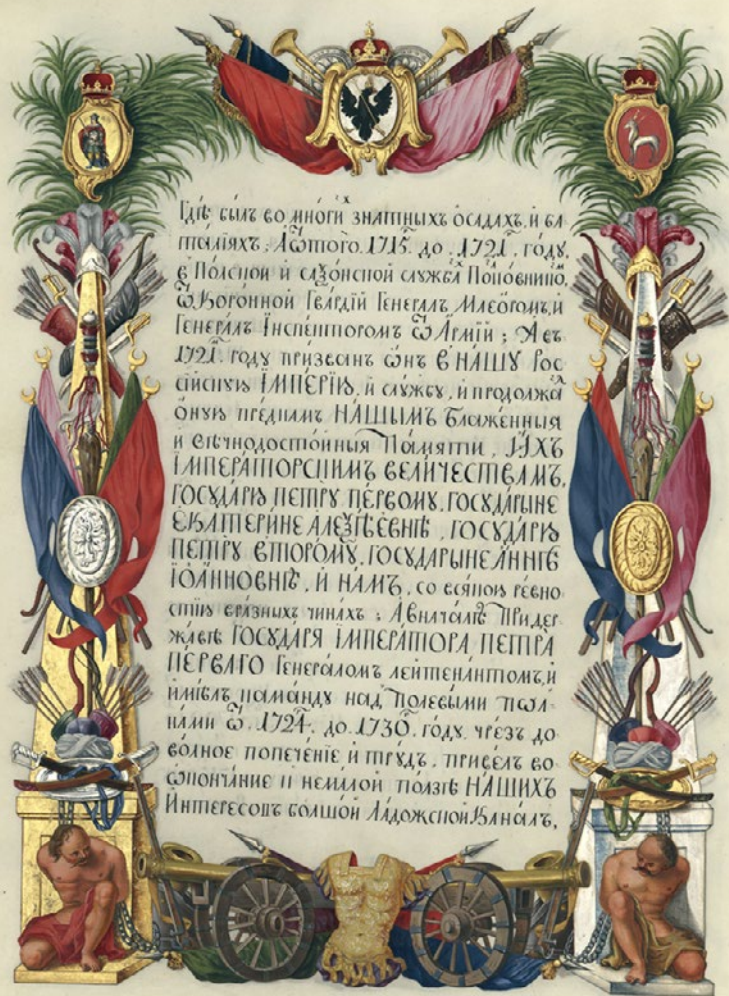 Гдѣ былъ во многихъ знатныхъ осадахъ, и ба
таліяхъ; А ѿтого 1715. до 1721. году,
в Полской и саѯонской служба Полковникомъ,
ѿ Коронной Гвардіи Генералъ Маеоромъ, и
Генералъ Інспекторомъ ѿ Арміи; А въ
1721. году призванъ ѡнъ В НАШУ Рос
сійскую ІМПЕРІЮ, и службу, и продолжалъ
оную предкамъ НАШЫМЪ Блаженныя
и вѣчнодостойныя Памяти, ИХЪ
ІМПЕРАТОРСКИМЪ ВЕЛИЧЕСТВАМЪ,
ГОСУДАРЮ ПЕТРУ ПЕРВОМУ, ГОСУДАРЫНЕ
ЕКАТЕРИНЕ АЛЕѮѢЕВНѢ, ГОСУДАРЮ
ПЕТРУ ВТОРОМУ, ГОСУДАРЫНЕ АННѢ
ІОАННОВНѢ, И НАМЪ, со всякою ревно
стію вразныхъ чинахъ; А вначалѣ Придер
жавѣ ГОСУДАРЯ ІМПЕРАТОРА ПЕТРА
ПЕРВАГО Генераломъ леитенантомъ, и
имѣлъ команду над Полевыми пол
ками ѿ 1724. до 1730. году, чрезъ до
волное попеченіе и трудъ, привелъ во
ѡкончание и немалой ползѣ НАШИХЪ
Интересовъ болшой Ладожской Каналъ,